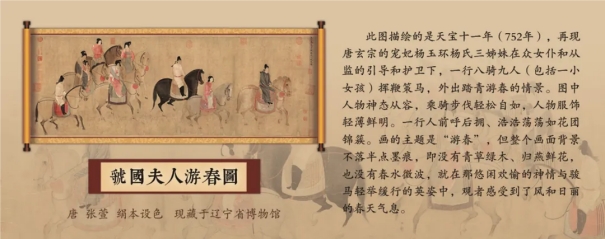 此图描绘的是天宝十一年（752年），再现
唐玄宗的宠妃杨玉环杨氏三姊妹在众女仆和从
监的引导和护卫下，一行八骑九人（包括一小
女孩）挥鞭策马，外出踏青游春的情景。图中
人物神态从容，乘骑步伐轻松自如，人物服饰
轻薄鲜明。一行人前呼后拥、浩浩荡荡如花团
锦簇。画的主题是“游春”，但整个画面背景
不落半点墨痕，即没有青草绿木、归燕鲜花，
也没有春水微波，就在那悠闲欢愉的神情与骏
马轻举缓行的英姿中，观者感受到了风和日丽
的春天气息。
虢國夫人游春圖
唐 张萱 绢本设色 现藏于辽宁省博物馆